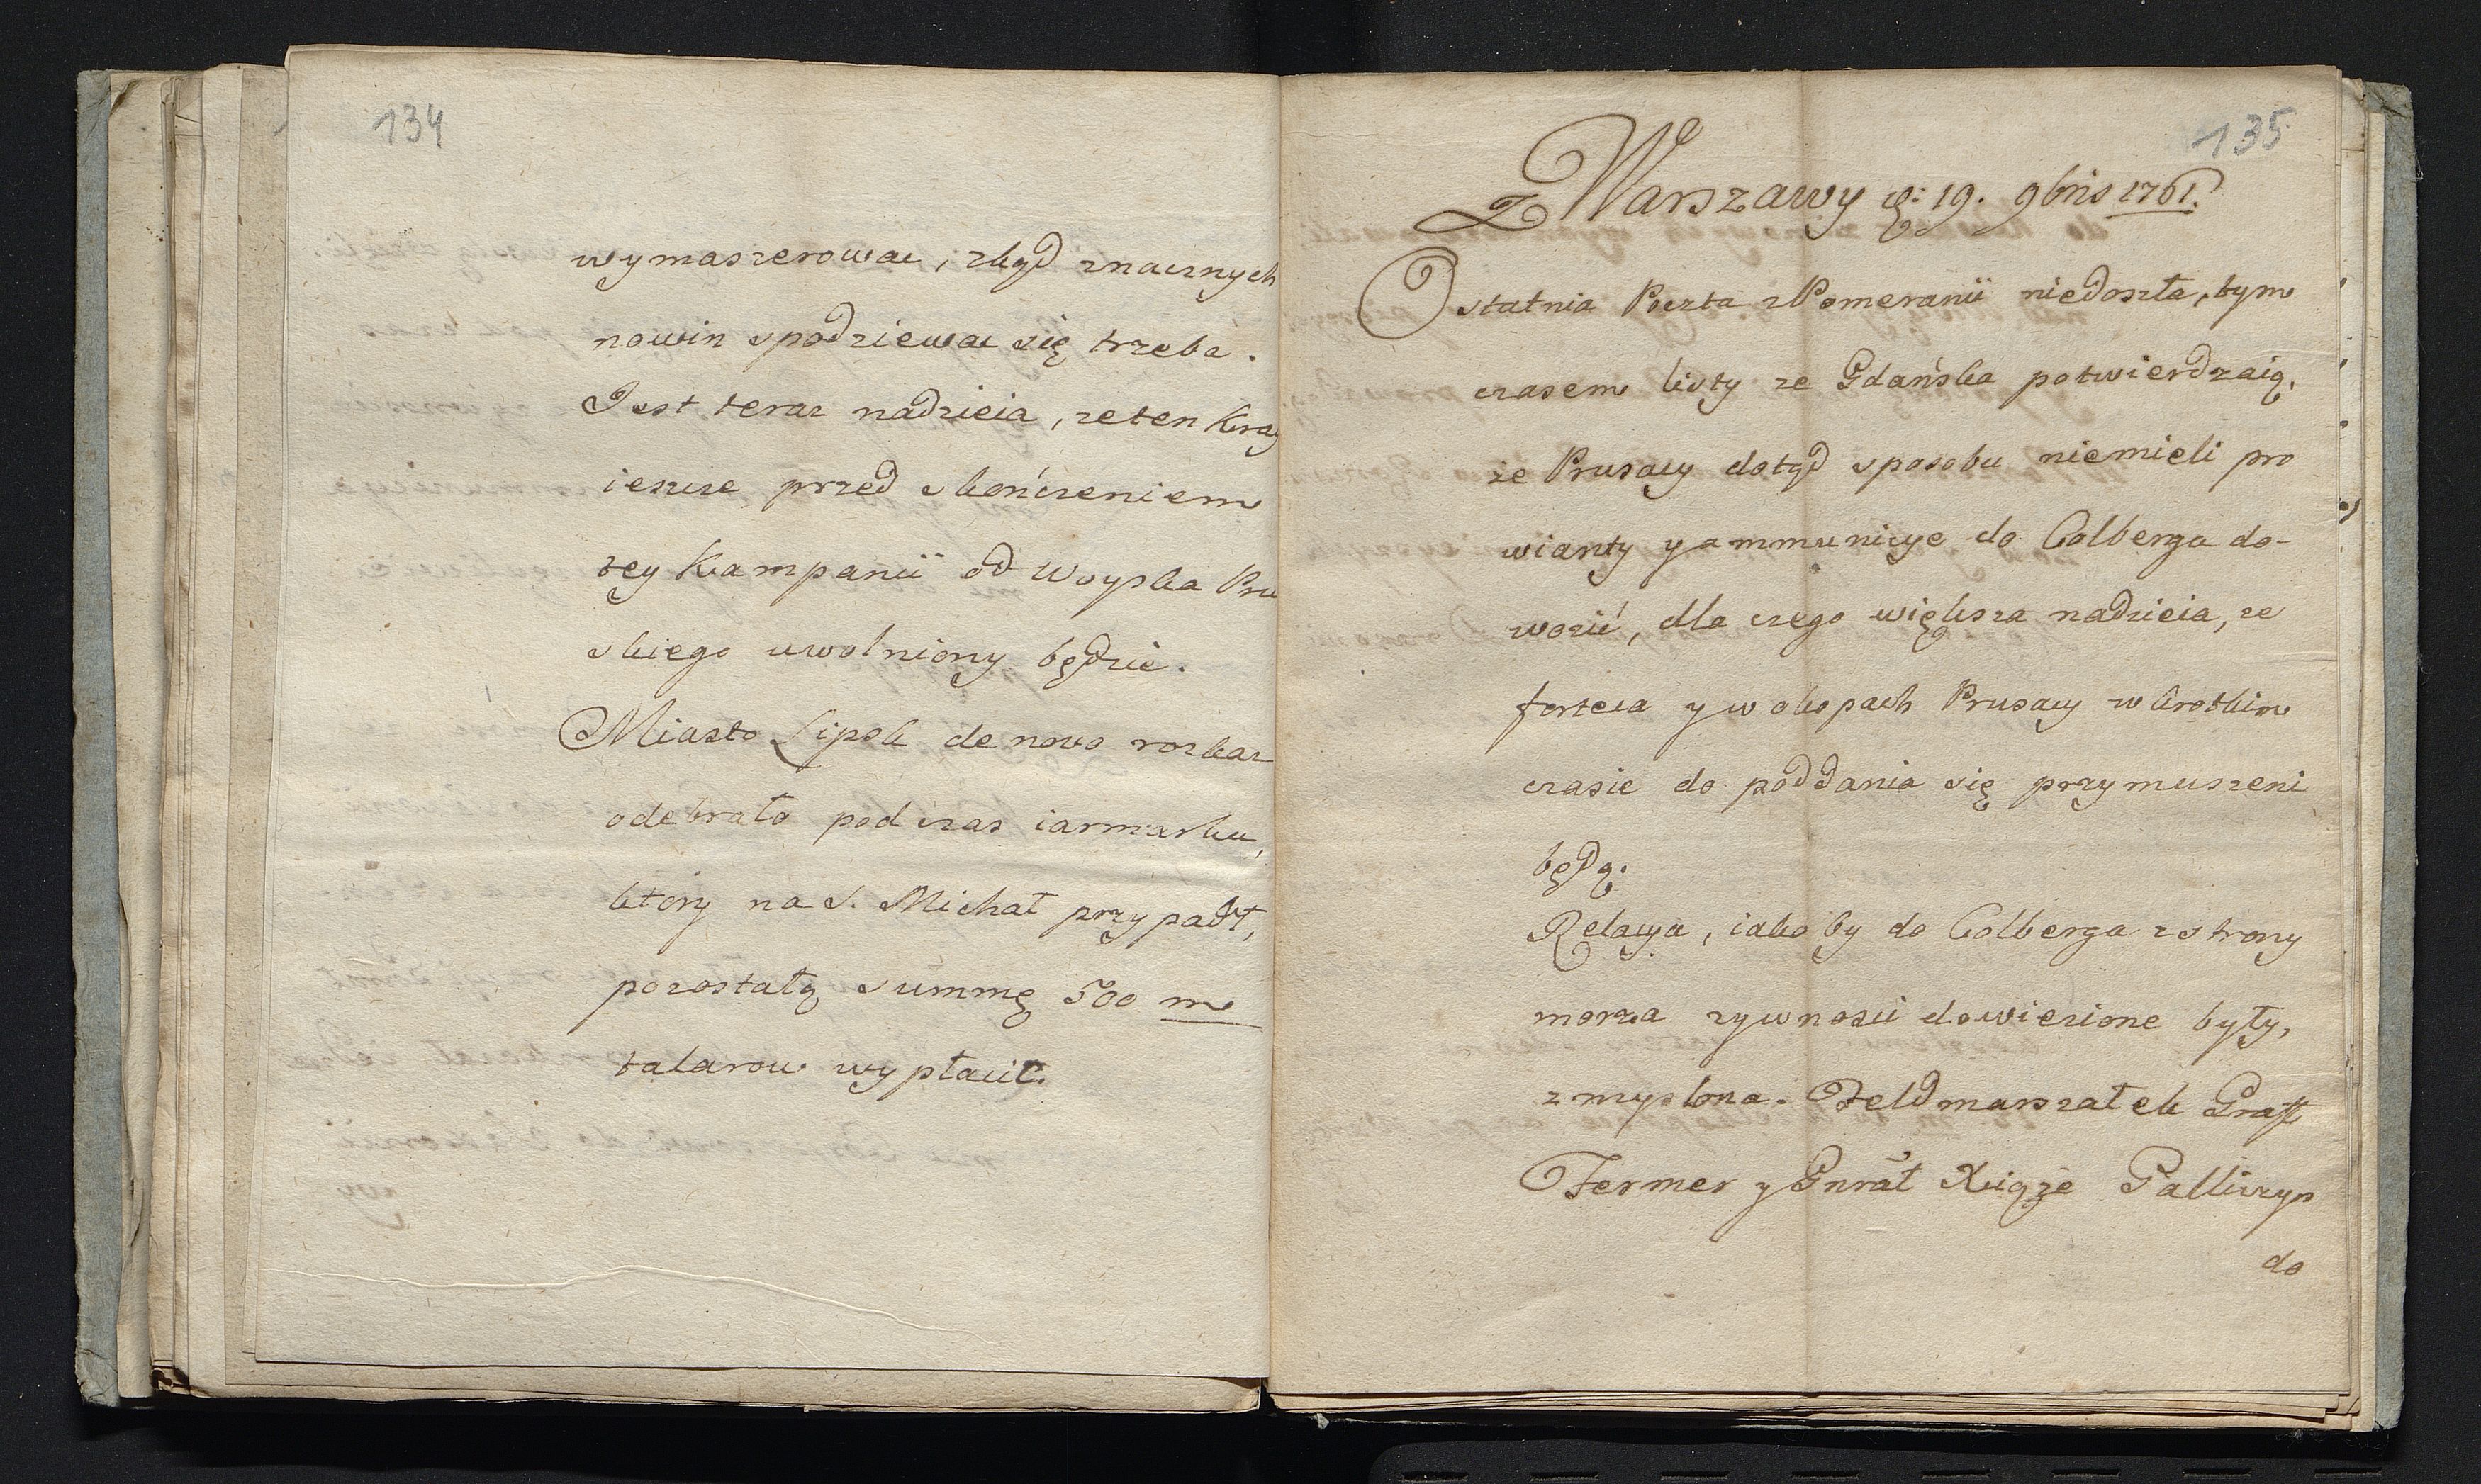 134
wymaszerowac, zkąd znacznych
nowin spodziewac się trzeba.
Jest teraz nadzieia, ze ten Kray
ieszcze przed skończeniem
tey Kampanii od Woyska Pru
skiego uwolniony będzie.
Miasto Lipsk de novo rozkaz
odebrało podczas iarmarku,
ktory na S. Michał przypadł,
pozostałą summę 500 m
talarow wypłacic.
135
Z Warszawy d: 19. 9bris 1761.
Ostatnia Poczta z Pomeranii niedoszła, tym
czasem listy ze Gdańska potwierdzaią,
że Prusacy dotąd sposobu niemieli pro
wianty y ammunicye do Colberga do-
wozić, dla czego większa nadzieia, ze
forteca y w okopach Prusacy w krotkim
czasie do poddania się przymuszeni
będą.
Relacya, iakoby do Colberga z strony
morza zywnosci dowiezione były,
zmyslona. Feldmarszałek Graff
Fermer y Gnrał Xiąże Galliczyn
do